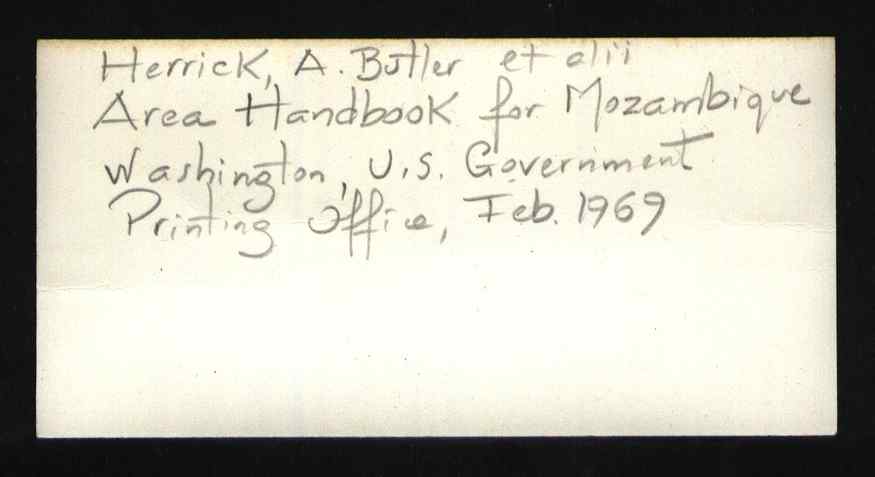 Herrick, A. Butler et alii
Area Handbook for Mozambique
Washington, U.S. Government
Printing Office, Feb. 1969